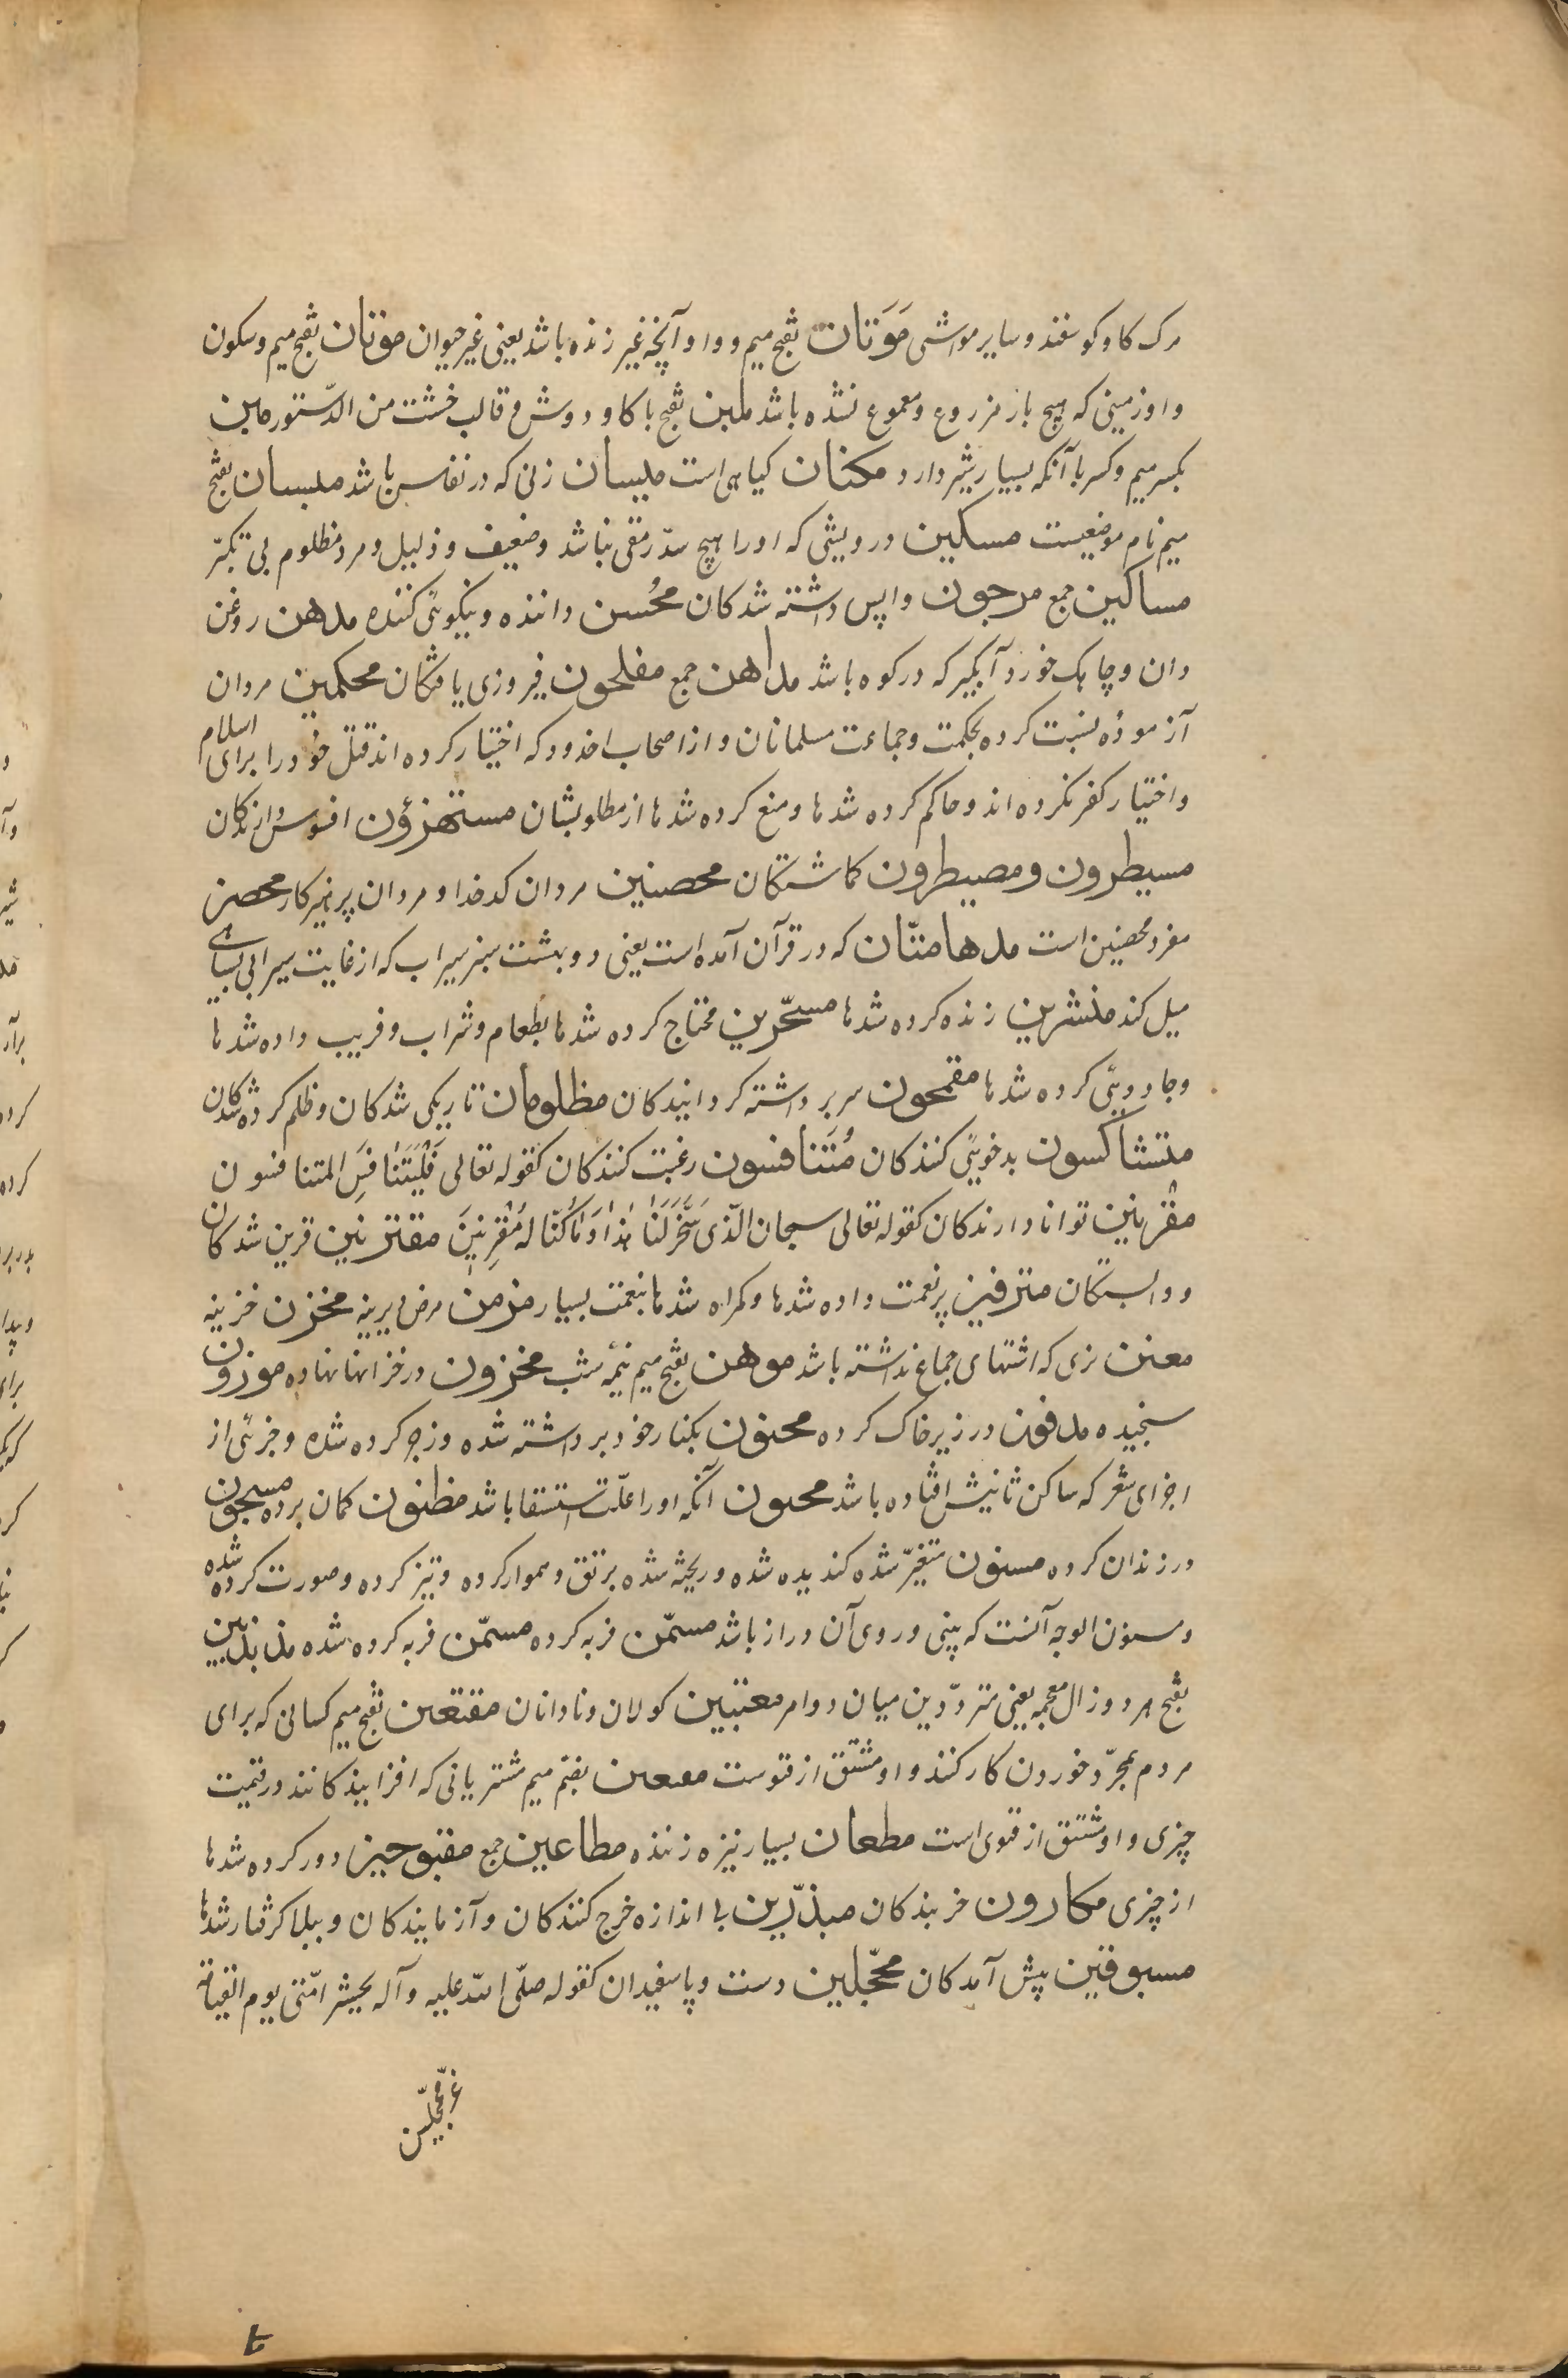 مرک کاو کوسفند و سایر مواشی مَوَتان بفتح میم و واو آنچه غیر زنده باشد یعنی غیر حیوان موتان بفتح میم و سکون
واو زمینی که هیچ بار مزروع و معموع نشده باشد ملبن بفتح با کاو دوش و قالب خشت من الدّستور ملبن
بکسر میم و کسر با آنکه بسیار شیر دارد مکنان کیاهی است میسان زنی که در نفاس باشد میسان بفتح
میم نام موضعیست مسکین درویشی که او را هیچ سدّ رمقی نباشد و ضعیف و ذلیل و مرد مظلوم بی تکبّر
مساکین جمع مرجون واپس داشته شدکان محُسن داننده و نیکویٔی کننده مدهن روغن
دان و چاهک خورد آبکیر که در کوه باشد مداهن جمع مفلحون فیروزی یافتکان محکمین مردان
آزموده نسبت کرده بحکمت و جماعت مسلمانان و از اصحاب اخدود که اختیار کرده اند قتل خود را برای اسلام
و اختیار کفر نکرده اند و حاکم کرده شدها و منع کرده شدها از مطلوبشان مستهزؤن افسوس دارندکان
مسیطرون و مصیطرون کماشتکان محصنین مردان کدخدا و مردان پرهیزکار محصن
مفرد محصنین است مدهامتّان که در قرآن آمده است یعنی دو بهشت سبز سیراب که از غایت سیرابی بسیاهی
میل کند منشرین زنده کرده شدها مسحّرین محتاج کرده شدها بطعام و شراب و فریب داده شدها
و جادویٔی کرده شدها مقمحون سر برداشته کردانیدکان مظلومان تاریکی شدکان و ظلم کرده شدکان
متشاکسون بدخویٔی کنندکان مُتَنافسون رغبت کنندکان کقوله تعالی فَلْیَتَنافَسِ المتنافسون
مقْرنین توانا دارندکان کقوله تعالی سبحان الّذی سَخَّرَ لَنا هٰذا وَ ما کُنّا لَهُ مُقْرِنینَ مقترنین قرین شدکان
و وابستکان مترفین پر نعمت داده شدها و کمراه شدها بنعمت بسیار مزمن مرض دیرینه مخزن خزینه
معنن نری که اشتهای جماع نداشته باشد موهن بفتح میم نیمٔه شب مخزون در خزانها نهاده موزون
سنجیده مدفون در زیر خاک کرده محنون بکنار خود برداشته شده و زجر کرده شده و جزیٔی از
اجزای شعر که ساکن ثانیش افتاده باشد محبون آنکه او را علّت استسقا باشد مظنون کمان برده مسجون
در زندان کرده مسنون متغیّر شده کندیده شده و ریخته شده برتق و هموار کرده و تیز کرده و صورت کرده شده
و مسنون الوجه آنست که بینی و روی آن دراز باشد مسمّن فربه کرده مسمّن فربه کرده شده مذبذبین
بفتح هر دو ذال معجمه یعنی متردّدین میان دو امر معتبین کولان و نادانان مقتعین بفتح میم کسانی که برای
مردم بمجرّد خوردن کار کنند و او مشتق از قتوست مقتعین بضم میم مشتریانی که افزایندکانند در قیمت
چیزی و او مشتق از قتوی است مطعان بسیار نیزه زننده مطاعین جمع مقبوحین دور کرده شدها
از چیزی مکارون خربندکان مبذّرین بی اندازه خرج کنندکان و آزمایندکان و ببلا کرفتار شدها
مسبوقین پیش آمدکان محجّلین دست و پا سفیدان کقوله صلّی اللّه علیه و آله یحشر امّتی یوم القیٰمة
غرّ محجّلین